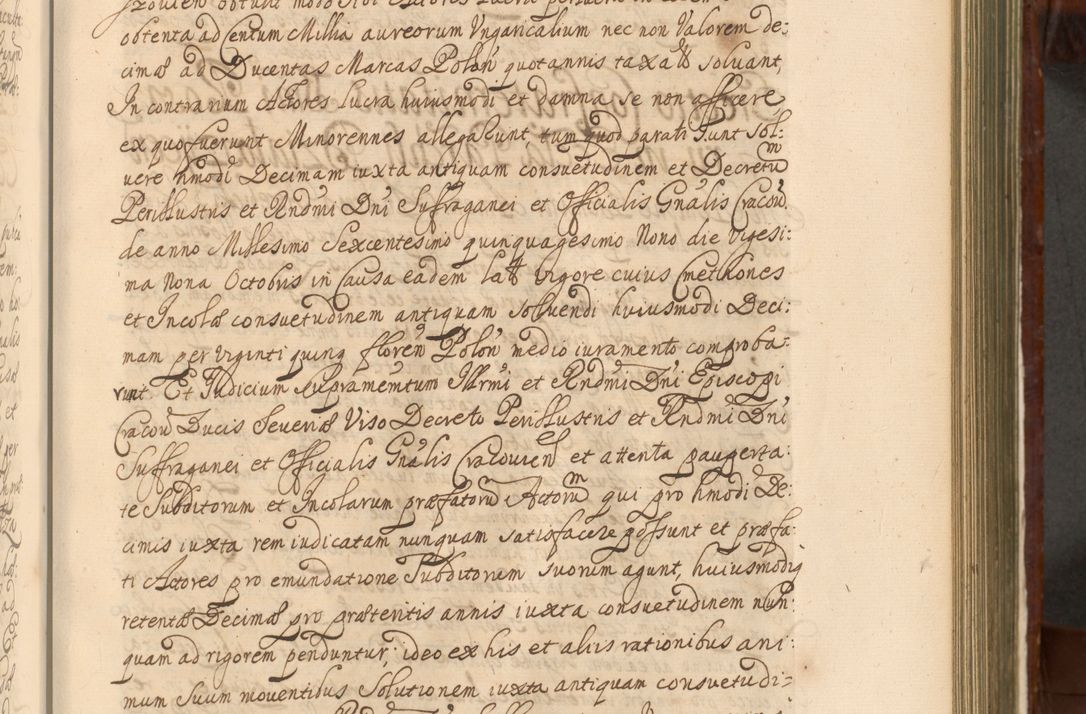 obtenta ad Centum Millia aureorum Vngaricalium nec non Valorem de:
cimas ad Ducentas Marcas Polon quotannis taxatt soluant,
In contrarium Actores lucra huiusmodi et damna se non afficere
ex quo fuerunt Minorennes allegarunt, tum quod parati sunt Sol:
uere hmodi Decimam iuxta antiquam consuetudinem et Decretum
Perillustris et Rndmi Dni Suffraganei et Officialis Gnalis Cracou
de anno Millesimo Sexcentesimo quinquagesimo Nono die vigesi:
ma Nona Octobris in Causa eadem latt vigore cuius Cmethones
et Incolas consuetudinem antiquam Soluendi huiusmodi Deci:
mam per viginti quinq floren Polon medio iuramento comproba:
runt. Et Iudicium supramemtum Illrmi et Rndmi Dni Episcopi
Cracou Ducis Seueriae Viso Decreto Perillustris et Rndmi Dni
Suffraganei et Officialis Gnalis Cracouien et attenta pauperta:
te Subditorum et Incolarum praefatorum Actorum qui pro hmodi De:
cimis iuxta rem iudicatam nunquam satisfacere possunt et praefa:
ti Actores pro emundatione Subditorum suorum agunt, huiusmodiq
retentas Decimas pro praeteritis annis iuxta consuetudinem nun
quam ad rigorem penduntur; ideo ex his et aliis rationibus ani:
mum suum mouentibus Solutionem iuxta antiquam consuetudi=